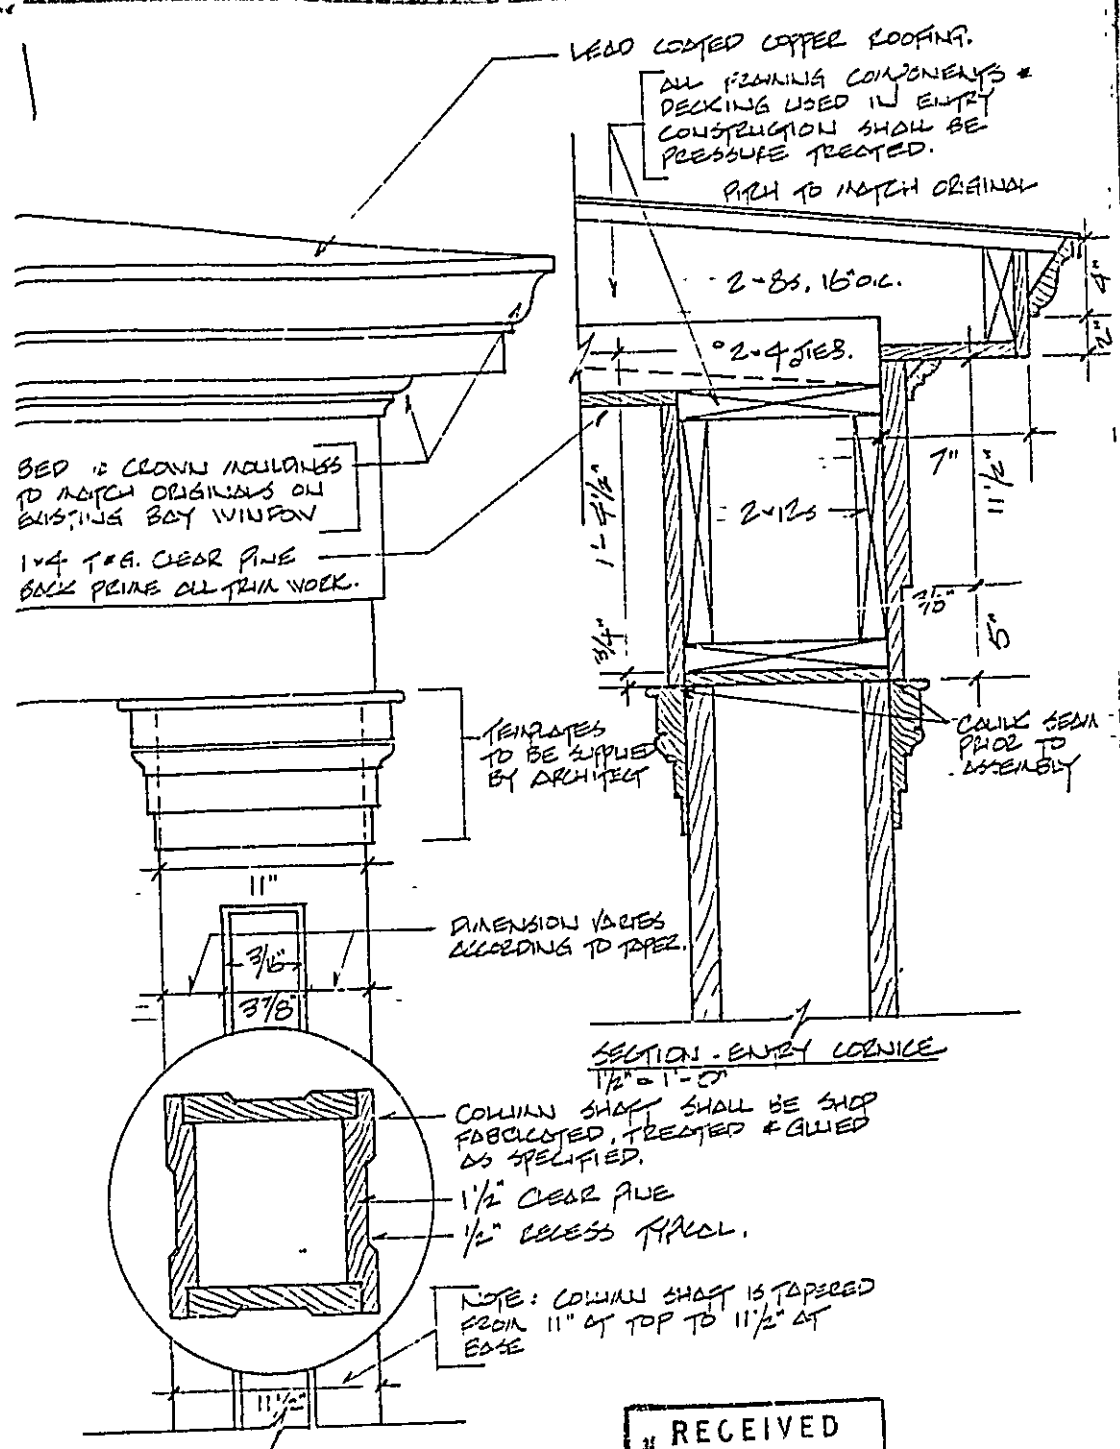 LEAD COATED COPPER ROOFING.
ALL FRAMING COMPONENTS &
DECKING USED IN ENTRY
CONSTRUCTION SHALL BE
PRESSURE TREATED.
PITCH TO MATCH ORIGINAL
2-8s, 16"o.c.
4"
2"
2-4 TIES.
BED & CROWN MOULDINGS
TO MATCH ORIGINALS ON
EXISTING BAY WINDOW
1x4 T&G. CLEAR PINE
BACK PRIME ALL TRIM WORK.
1'-4 1/2"
2x12s
7"
11 1/2"
3/4"
5"
TEMPLATES
TO BE SUPPLIED
BY ARCHITECT
CAULK SEAM
PRIOR TO
ASSEMBLY
11"
DIMENSION VARIES
ACCORDING TO TAPER.
3 7/8"
SECTION - ENTRY CORNICE
1 1/2" = 1'-0"
COLUMN SHAFT SHALL BE SHOP
FABRICATED, TREATED & GLUED
AS SPECIFIED.
1 1/2" CLEAR PINE
1/2" RECESS TYPICAL.
NOTE: COLUMN SHAFT IS TAPERED
FROM 11" AT TOP TO 11 1/2" AT
BASE
11 1/2"
RECEIVED